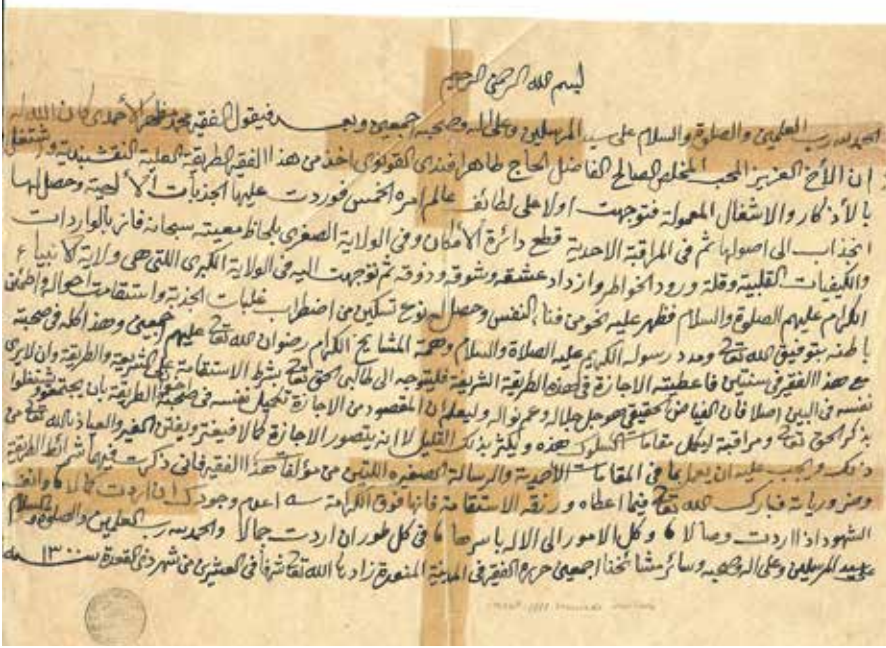 بسم الله الرحمن الرحيم
الحمد لله رب العلمين والصلوة والسلام على سيد المرسلين وعلى اله وصحبه اجمعين وبعد فيقول الفقير محمد مظهر الأحمدي كان الله له
ان الأخ العزيز المحب المخلص الصالح الفاضل الحاج طاهر افندى القونوى اخذ من هذا الفقير الطريقة العلية النقشبندية واشتغل
بالأذكار والاشغال المعمولة فتوجهت اولا على لطائف عالم امره الخمس فوردت عليها الجذبات الألهية وحصل لها
انجذاب الى اصولها ثم في المراقبة الاحدية قطع دائرة الأمكان وفي الولاية الصغرى بلحاظ معيته سبحانه فاز بالواردات
والكيفيات القلبية وقلة ورود الخواطر وازداد عشقه وشوقه وذوقه ثم توجهت اليه في الولاية الكبرى اللتي هي ولاية الانبياء
الكرام عليهم الصلوة والسلام فظهر عليه نحو من فناء النفس وحصل له نوع تسكين من اضطراب غلبات الجذبة واستقامت احواله واطمئن
باطنه بتوفيق الله تعالى ومدد رسوله الكريم عليه الصلاة والسلام وهمة المشايخ الكرام رضوان الله تعالى عليهم اجمعين وهذا كله في صحبته
مع هذا الفقير في سنتين فاعطيته الاجازة في هذه الطريقة الشريفة فليتوجه الى طالبى الحق تعالى بشرط الاستقامة على الشريعة والطريقة وان لا يرى
نفسه في البين اصلا فان الفياض الحقيقي هو جل جلاله وعم نواله وليعلم ان المقصود من الاجازة تكميل نفسه في صحبة اخوان الطريقة بان يجتمعوا ويشتغلوا
بذكر الحق تعالى ومراقبة ليكمل مقامات السلوك هذه ويكثر بذلك القليل لا انه يتصور الاجازة كمالا فيغتر ويفتن الغير والعياذ بالله تعالى من
ذلك ويجب عليه ان يعمل بما في المقامات الأحمدية والرسالة الصغيره اللتين من مؤلفات هذا الفقير فانى ذكرت فيهما شرائط الطريقة
وضرورياته فبارك الله تعالى فيما اعطاه ورزقه الاستقامة فانها فوق الكرامة اعدام وجودك ان اردت كمالا
الشهود اذا اردت وصالا وكل الامور الى الاله باسرها في كل طور ان اردت جمالا والحمد لله رب العلمين والصلوة والسلام
على سيد المرسلين وعلى اله وصحبه وسائر مشائخنا اجمعين حرره الفقير في المدينة المنورة زادها الله تعالى شرفا في العشرين من شهر ذى القعدة سنة ١٣٠٠